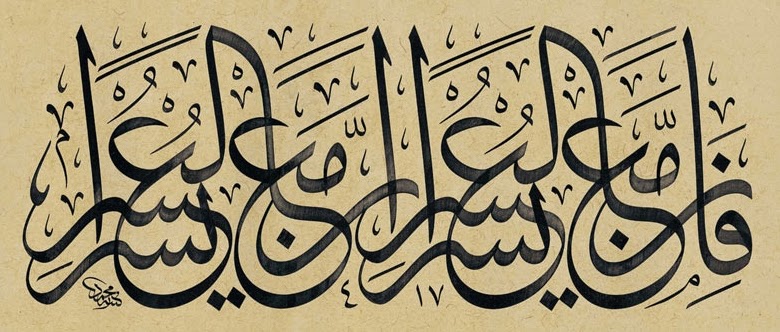 فَإِنَّ مَعَ الْعُسْرِ يُسْرًا إِنَّ مَعَ الْعُسْرِ يُسْرًا
٤ ١٧